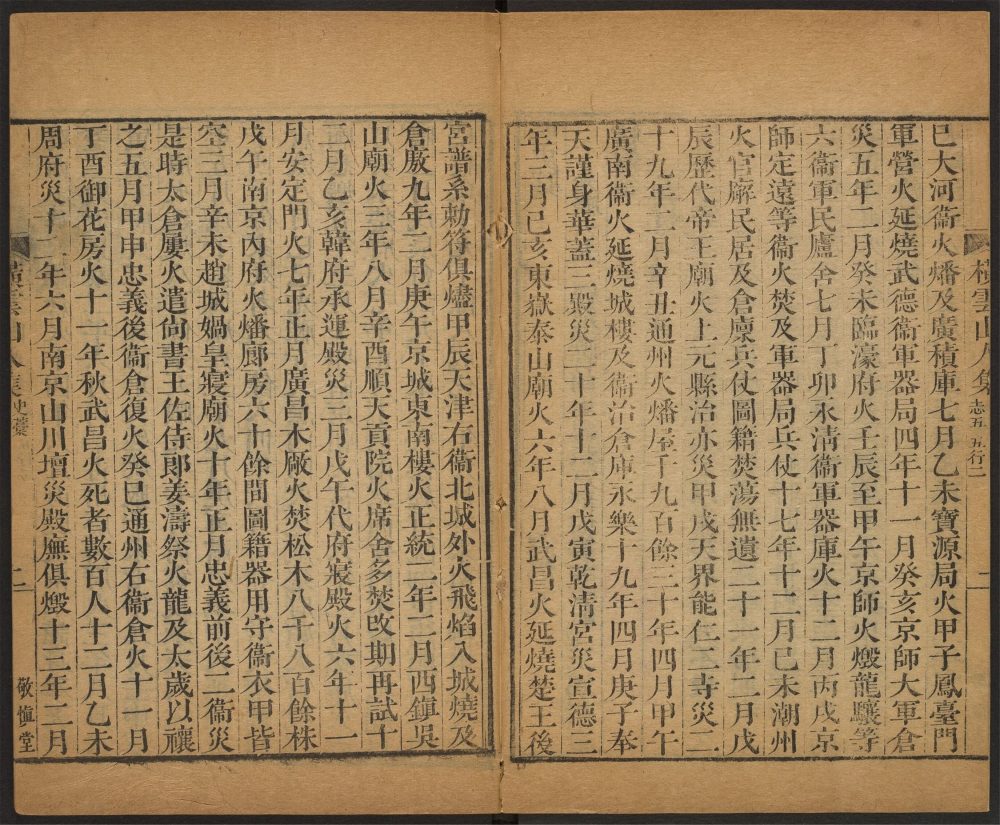 橫雲山人集 志五 五行二 二
巳大河衞火燔及廣積庫七月乙未寶源局火甲子鳳臺門
軍營火延燒武德衞軍器局四年十一月癸亥京師大軍倉
災五年二月癸未臨濠府火壬辰至甲午京師火燬龍驤等
六衞軍民廬舍七月丁卯永清衞軍器庫火十二月丙戌京
師定遠等衞火焚及軍器局兵仗十七年十二月己未潮州
火官廨民居及倉廩兵仗圖籍焚蕩無遺二十一年二月戊
辰歷代帝王廟火上元縣治亦災甲戌天界能仁二寺災二
十九年二月辛丑通州火燔屋千九百餘三十年四月甲午
廣南衞火延燒城樓及衞治倉庫永樂十九年四月庚子奉
天謹身華葢三殿災二十年十二月戊寅乾淸宮災宣德三
年三月己亥東嶽泰山廟火六年八月武昌火延燒楚王後
宮譜系勅符俱燼甲辰天津右衞北城外火飛焰入城燒及
倉廒九年二月庚午京城東南樓火正統二年二月西鎭吳
山廟火三年八月辛酉順天貢院火席舍多焚改期再試十
二月乙亥韓府承運殿災三月戊午代府寢殿火六年十一
月安定門火七年正月廣昌木厰火焚松木八千八百餘株
戊午南京內府火燔廊房六十餘間圖籍器用守衞衣甲皆
空三月辛未趙城媧皇寢廟火十年正月忠義前後二衞災
是時太倉屢火遣尙書王佐侍郎姜濤祭火龍及太歲以禳
之五月甲申忠義後衞倉復火癸巳通州右衞倉火十一月
丁酉御花房火十一年秋武昌火死者數百人十二月乙未
周府災十二年六月南京山川壇災殿廡俱燬十三年二月
橫雲山人集 史藁 二 敬愼堂